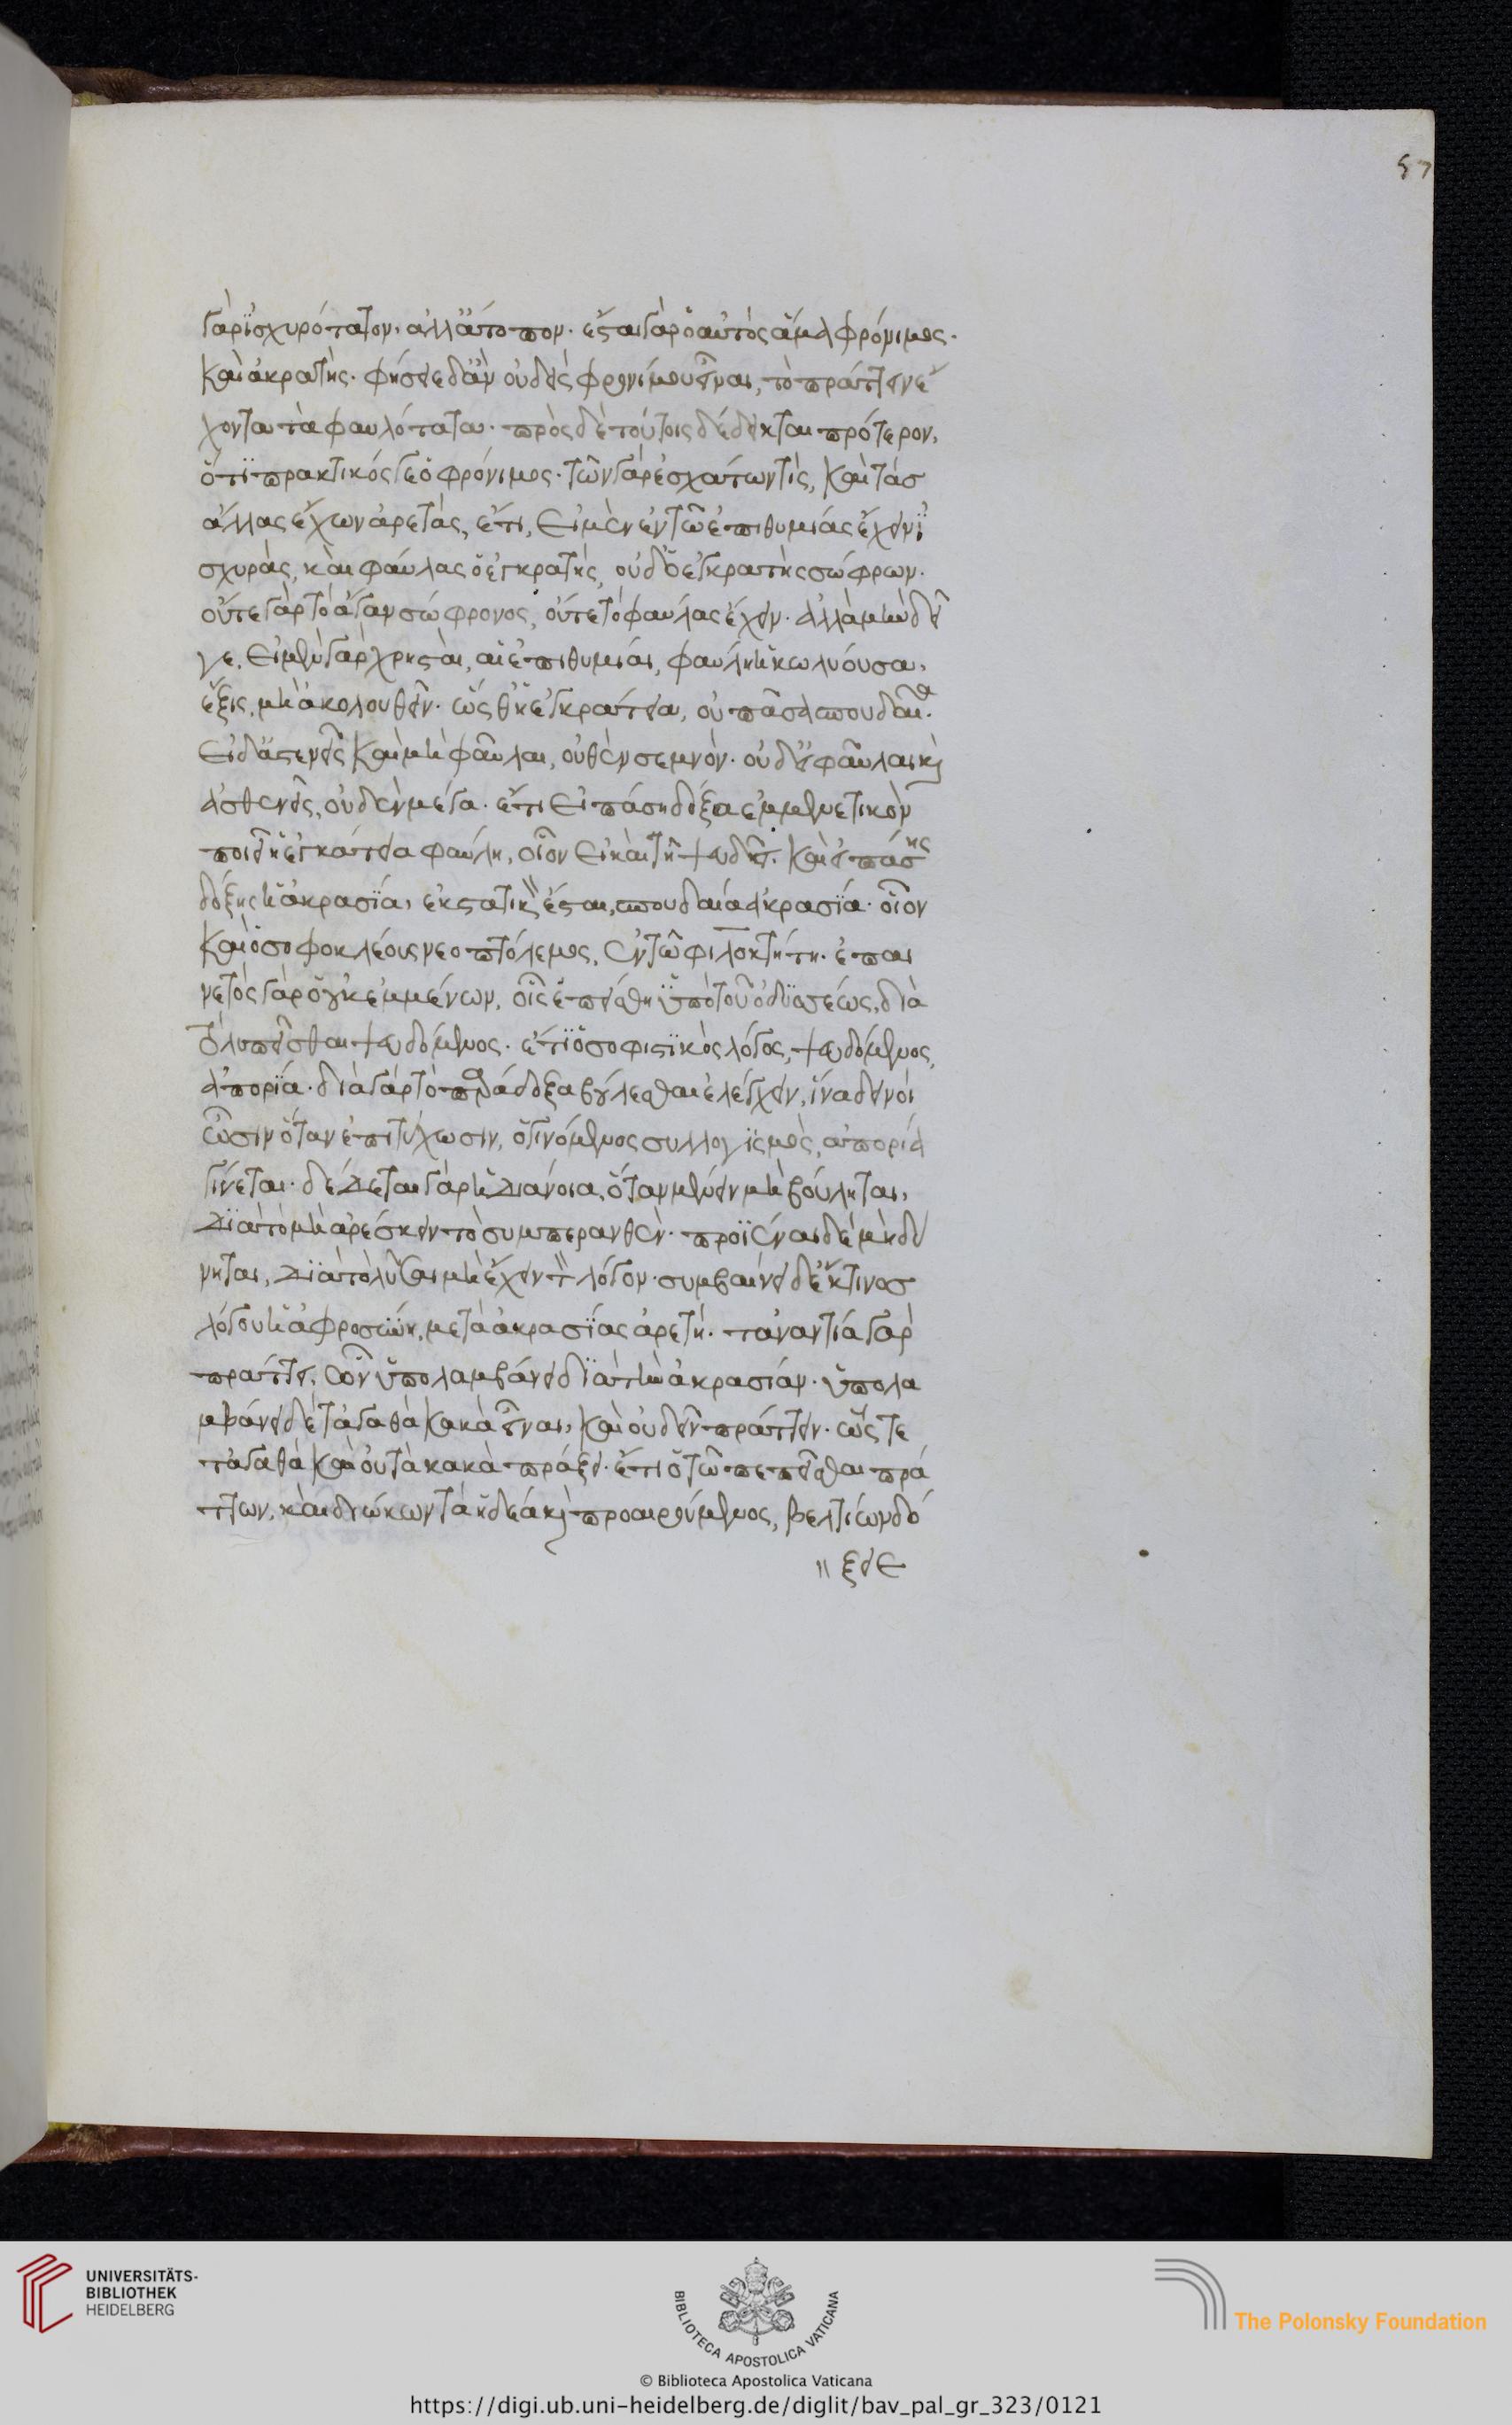 57
γὰρ ἰσχυρότατον, ἀλλ' ἄτοπον· ἔσται γὰρ ὁ αὐτὸς ἅμα φρόνιμος·
καὶ ἀκρατής· φήσειε δ' ἂν οὐδεὶς φρονίμου εἶναι, τὸ πράττειν ἑ
κόντα τὰ φαυλότατα· πρὸς δὲ τούτοις δέδεικται πρότερον,
ὅτι πρακτικός γε ὁ φρόνιμος· τῶν γὰρ ἐσχάτων τίς, καὶ τὰσ
ἄλλας ἔχων ἀρετάς, ἔτι, εἰ μὲν ἐν τῶ ἐπιθυμίας ἔχειν ἰ
σχυρὰς, καὶ φαύλας ὁ ἐγκρατής, οὐδ' ὁ ἐγκρατὴς σώφρων·
οὔτε γὰρ τὸ ἄγαν σώφρονος, οὔτε τὸ φαύλας ἔχειν· ἀλλὰ μὴν δεῖ
γε, εἰ μὲν γὰρ χρησταὶ, αἱ ἐπιθυμίαι, φαύλη ἡ κωλύουσα,
ἕξις, μὴ ἀκολουθεῖν· ὥσθ' ἡ ἐγκράτεια, οὐ πᾶσα σπουδαῖα·
εἰ δ' ἀσενεῖς καὶ μὴ φαῦλαι, οὐθὲν σεμνόν· οὐδ' εἰ φαῦλαι καὶ
ἀσθενεῖς, οὐδὲν μέγα· ἔτι εἰ πάση δόξα ἐμμενετικὸν
ποιεῖ ἡ ἐγκάτεια φαύλη, οἷον εἰ καὶ τῆ ψευδεῖ· καὶ εἰ πάσης
δόξης ἡ ἀκρασία, ἐκστατικὴ ἔσται, σπουδαία ἀκρασία· οἷον
καὶ ὁ σοφοκλέους νεοπτόλεμος, ἐν τῶ φιλοκτήτη· ἐπαι
νετὸς γὰρ οὐκ ἐμμένων, οἷς ἐπείσθη ὑπὸ τοῦ ὀδυσσέως, διὰ
τὸ λυπεῖσθαι ψευδόμενος· ἔτι ὁ σοφιστικὸς λόγος, ψευδόμενος,
ἀπορία· διὰ γὰρ τὸ παράδοξα βούλεσθαι ἐλέγχειν, ἵνα δεινοὶ
ὦσιν ὅταν ἐπιτύχωσιν, ὁ γινόμενος συλλογισμὸς, ἀπορία
γίνεται· δέδεται γὰρ ἡ διάνοια, ὅταν μένειν μὴ βούληται,
διὰ τὸ μὴ ἀρέσκειν τὸ συμπερανθὲν· προϊέναι δὲ μὴ δύ
νηται, διὰ τὸ λῦσαι μὴ ἔχειν τὸν λόγον· συμβαίνει δὲ ἔκ τινοσ
λόγου ἡ ἀφροσύνη, μετὰ ἀκρασίας ἀρετή· τἀναντία γὰρ
πράττει, ὧν ὑπολαμβάνει διὰ τὴν ἀκρασίαν· ὑπολα
μβάνει δὲ τἀγαθὰ κακὰ εἶναι, καὶ οὐ δεῖν πράττειν· ὥστε
τἀγαθὰ καὶ οὐ τὰ κακὰ πράξει· ἔτι ὁ τῶ πεπεῖσθαι πρά
ττων, καὶ διώκων τὰ ἡδέα καὶ προαιρούμενος, βελτίων δό
ξειε
UNIVERSITÄTS-
BIBLIOTHEK
HEIDELBERG
BIBLIOTECA APOSTOLICA VATICANA
The Polonsky Foundation
© Biblioteca Apostolica Vaticana
https://digi.ub.uni-heidelberg.de/diglit/bav_pal_gr_323/0121